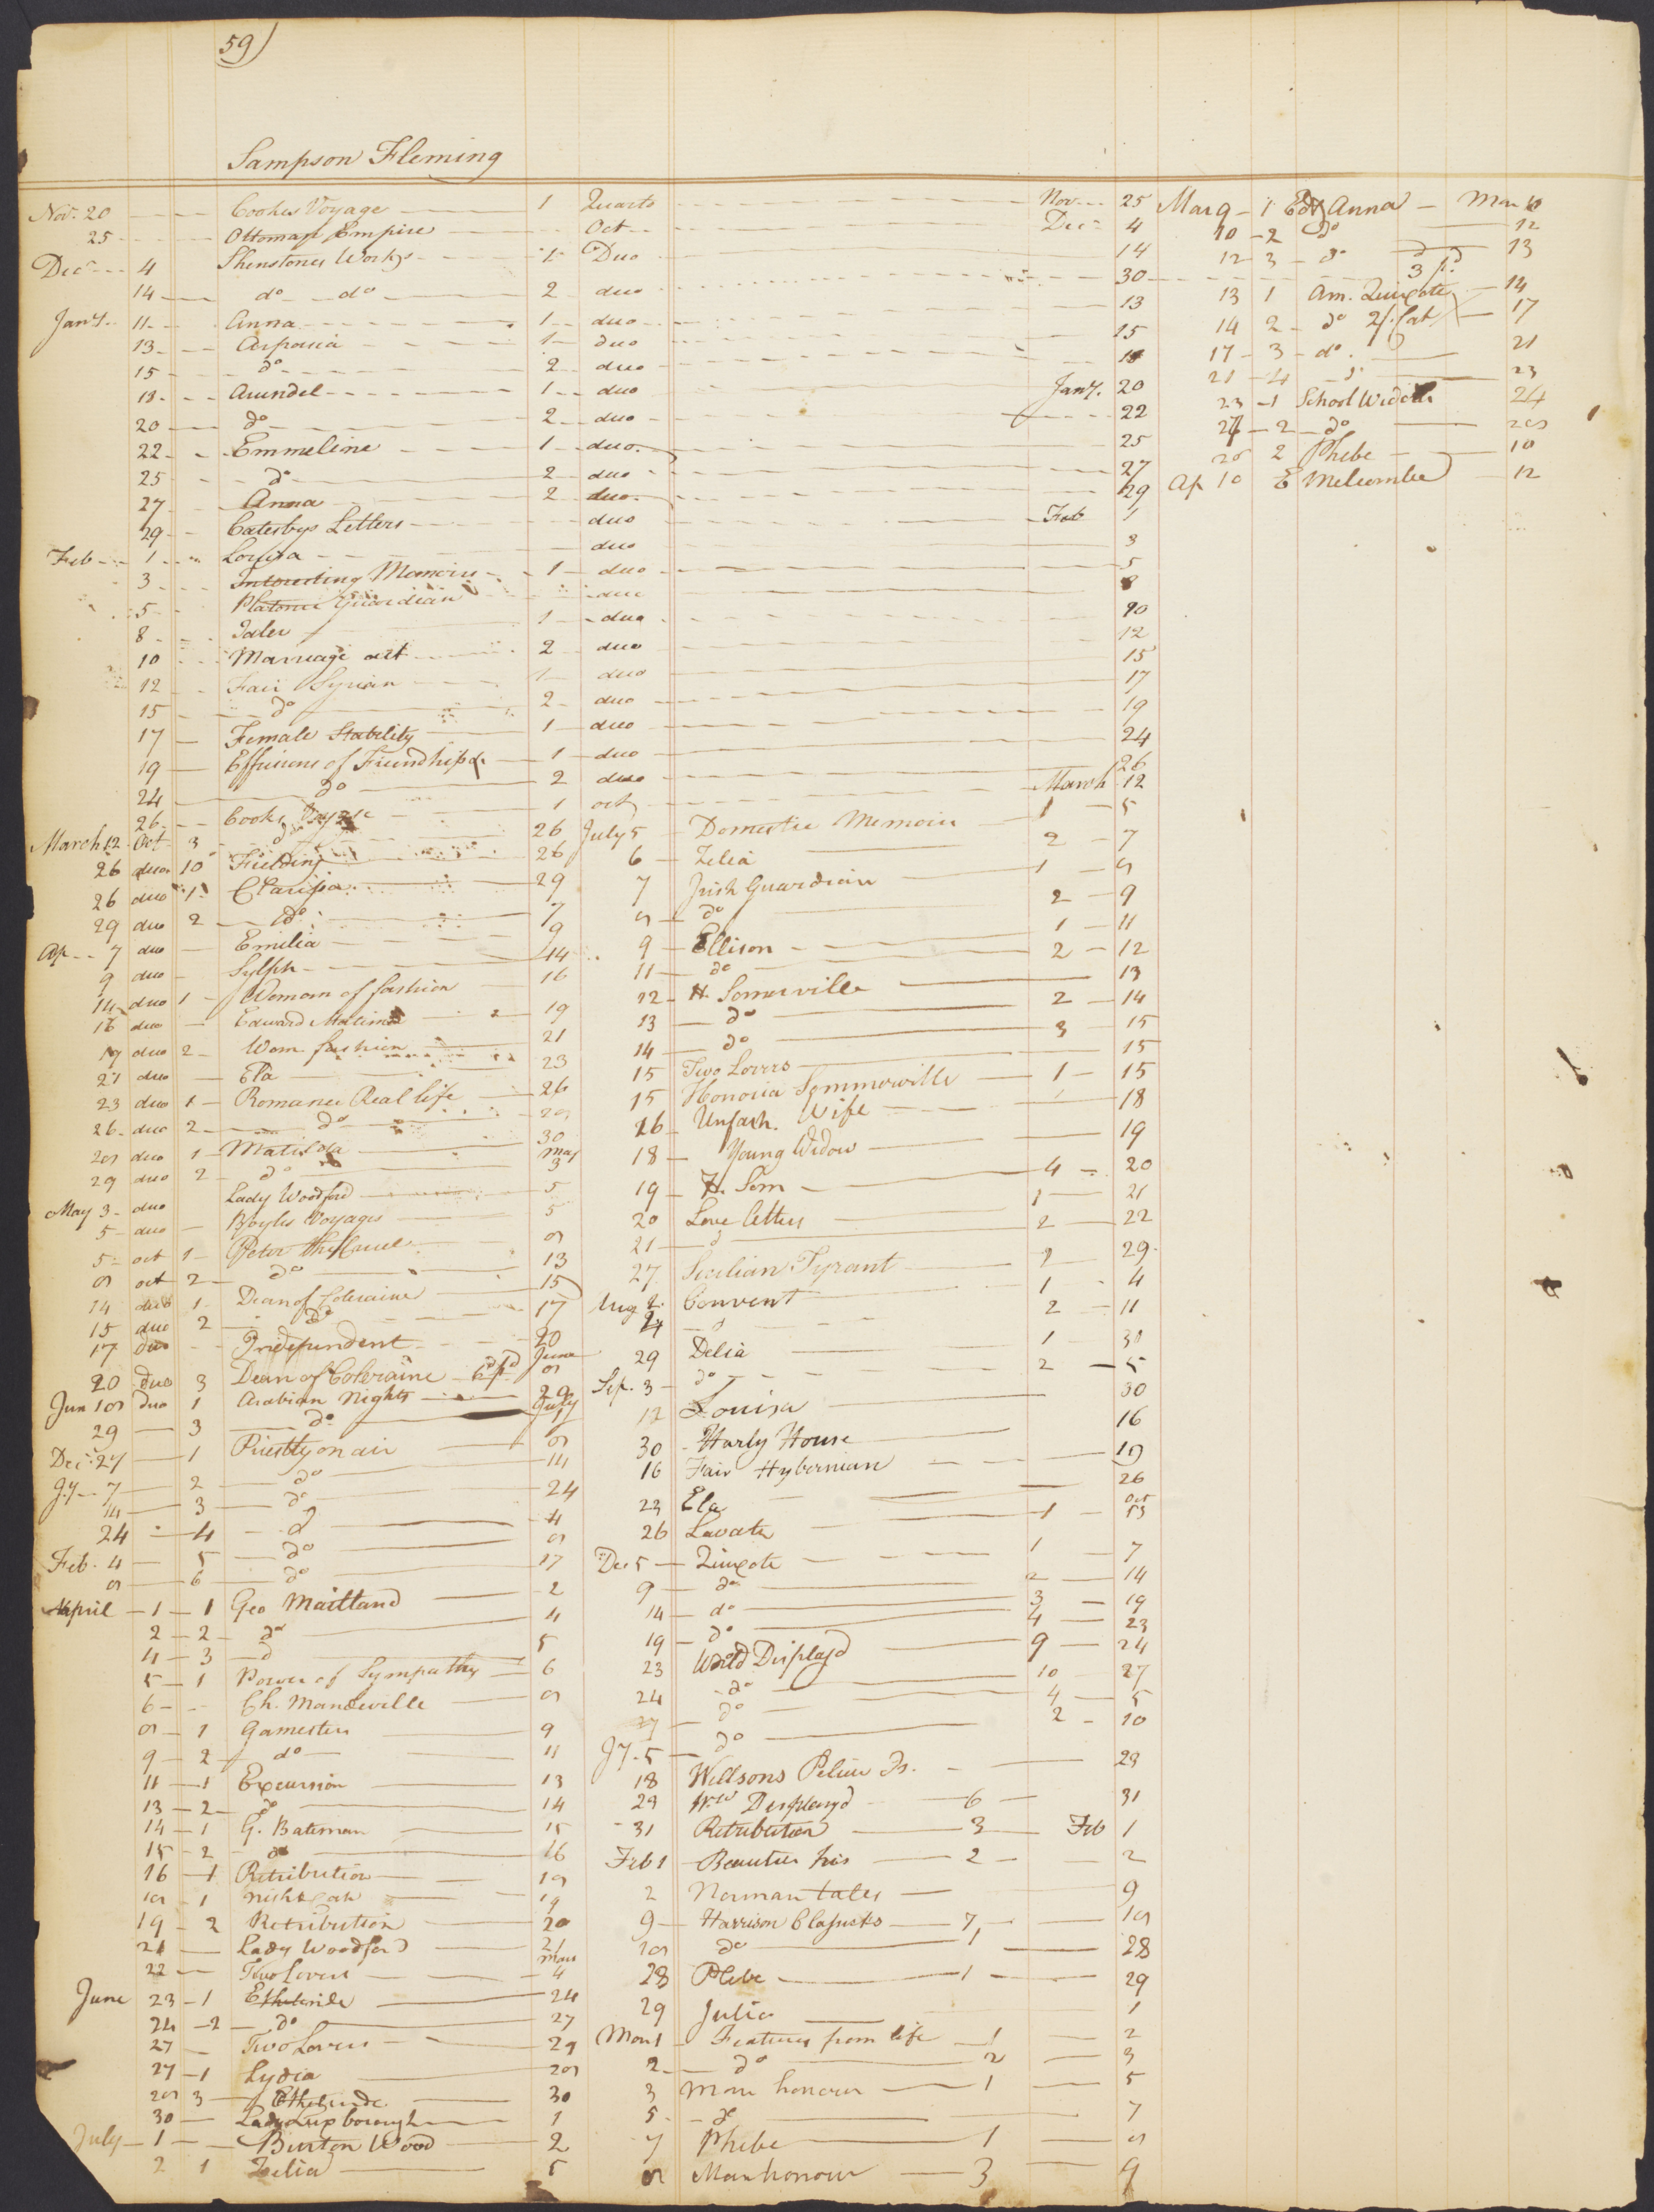 59)
Sampson Fleming
Nov. 20 Cookes Voyage 1 Quarto Nov 25
25 Ottoman Empire Oct Dec 4
Dec 4 Shenstones Works 1 Duo 14
14 do do 2 duo 30
Jany. 11 Anna 1 duo 13
13 Aspasia 1 duo 15
15 do 2 duo 18
18 Arundel 1 duo Jany. 20
20 do 2 duo 22
22 Emmeline 1 duo 25
25 do 2 duo 27
27 Anna 2 duo 29
29 Catesbys Letters duo Feb 1
Feb 1 Louisa duo 3
3 Interesting Memoirs 1 duo 5
5 Platonic Guardian duo 8
8 Tales 1 duo 10
10 Marriage act 2 duo 12
12 Fair Syrian 1 duo 15
15 do 2 duo 17
17 Female Stability 1 duo 19
19 Effusions of Friendship &c 1 duo 24
24 do 2 duo 26
26 Cooks Voyage 1 oct March 12
March 12 Oct 3 do 26
26 duo 10 Fielding 26
26 duo 1 Clarissa 29
29 duo 2 do 7
Ap 7 duo Emilia 9
9 duo Sylph 14
14 duo 1 Woman of fashion 16
16 duo Edward 19
19 duo 2 Wom. fashion 21
21 duo Ela 23
23 duo 1 Romance Real life 26
26 duo 2 do 28
28 duo 1 Matilda 30
29 duo 2 do May 3
May 3 duo Lady Woodford 5
5 duo Boyles Voyages 5
5 oct 1 Peter the Cruel 8
8 oct 2 do 13
14 duo 1 Dean of Coleraine 15
15 duo 2 do 17
17 duo Independent 20
20 duo 3 Dean of Coleraine June 8
Jun 18 duo 1 Arabian Nights 29
29 3 do July
Dec. 27 1 Priestly on air 8
Jy 7 2 do 14
14 3 do 24
24 4 do 4
Feb. 4 5 do 8
8 6 do 17
April 1 1 Geo Maitland 2
2 2 do 4
4 3 d 5
5 1 Power of Sympathy 6
6 Ch. Mandeville 8
8 1 Gamesters 9
9 2 do 11
11 1 Excursion 13
13 2 do 14
14 1 G. Bateman 15
15 2 do 16
16 1 Retribution 18
18 1 Night cap 19
19 2 Retribution 20
21 Lady Woodford 21
22 Two Lovers 4
June 23 1 Ethelinde 24
24 2 do 27
27 Two Lovers 29
27 1 Lydia 28
28 3 Ethelinde 30
30 Lady Luxborough 1
July 1 Burton Wood 2
2 1 Zelia 5
July 5 Domestic Memoirs 1 5
6 Zelia 2 7
7 Irish Guardian 1 8
8 do 2 9
9 Ellison 1 11
11 do 2 12
12 H. Somerville 13
13 do 2 14
14 do 3 15
15 Two Lovers 15
15 Honoria Sommerville 1 15
16 Unfash. Wife 18
18 Young Widow 19
19 H. Som 4 20
20 Love letters 1 21
21 d 2 22
27 Sicilian Tyrant 2 29
Aug 2 Convent 1 4
4 d 2 11
29 Delia 1 31
Sep. 3 do 2 5
12 Louisa 30
30 Harly House 16
16 Fair Hybernian 19
23 Ela 26
26 Lavater 1 Oct 13
Dec 5 Quixote 1 7
9 do 2 14
14 do 3 19
19 do 4 23
23 World Displayd 9 24
24 do 10 27
27 do 4 5
Jy. 5 do 2 10
18 Willsons Pelew Is. 29
29 Wd Displayd 6 31
31 Retribution 3 Feb 1
Feb 1 Beauties his 2 2
2 Norman tales 9
9 Harrison Classicks 7 18
18 do 1 28
28 Plebe 1 29
29 Julia 1
Mar 1 Features from life 1 2
2 do 2 3
3 Man honour 1 5
5 do 7
7 Phebe 1 8
8 Man honour 3 9
Mar 9 1 Anna Mar 10
10 2 do 12
12 3 do 13
13 1 Am. Quixote 14
14 2 do 17
17 3 do 21
21 4 23
23 1 School Widows 24
24 2 do 28
28 2 Phebe 10
Ap 10 E Melcombe 12